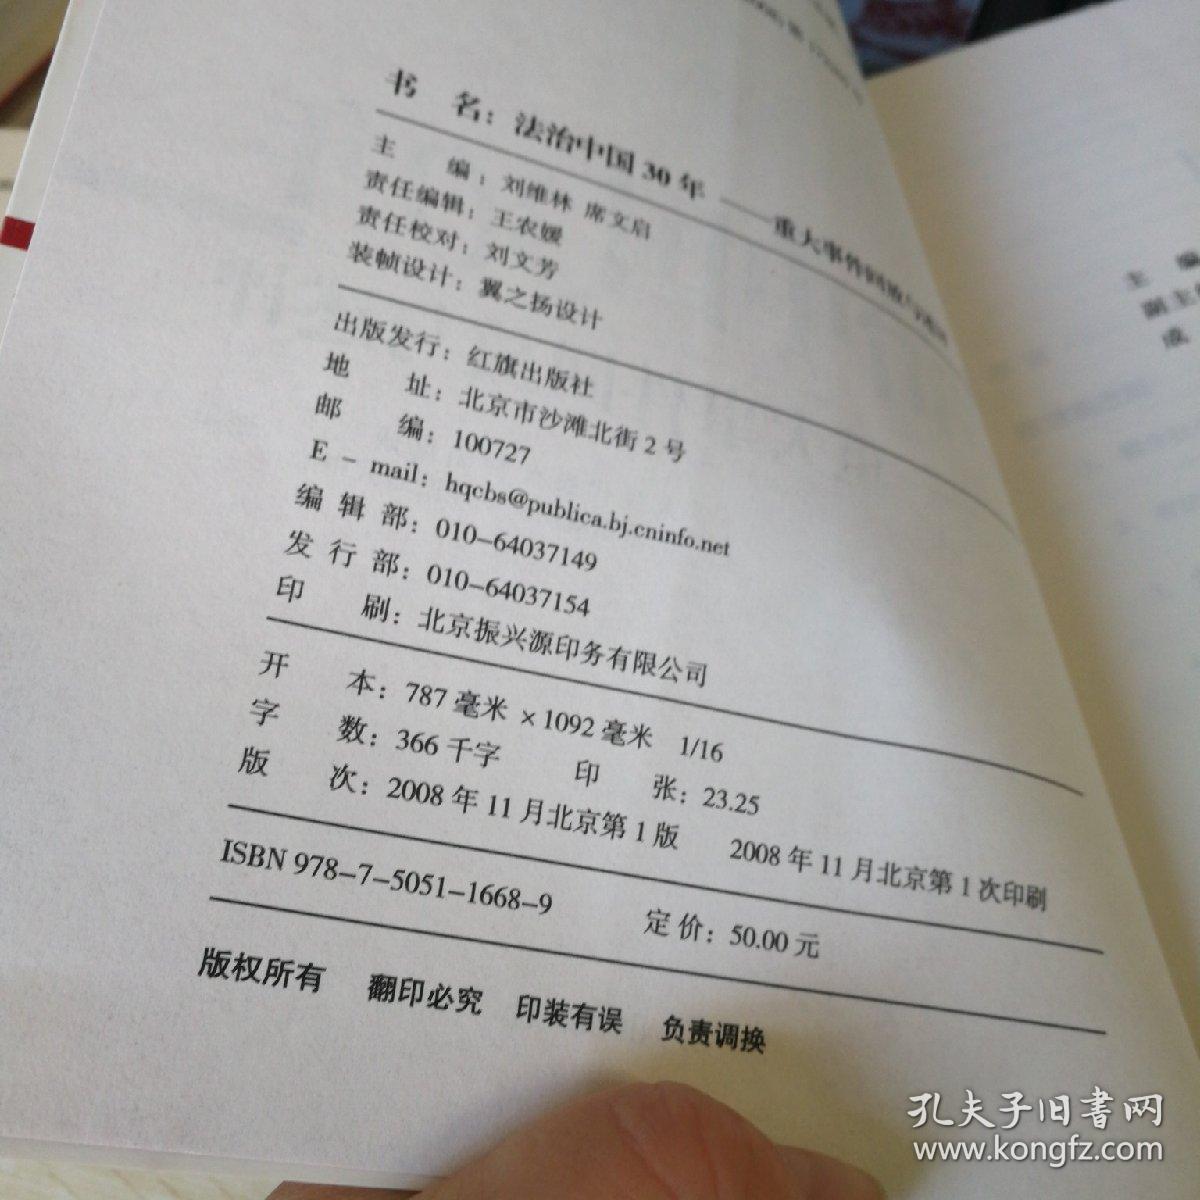 书 名：法治中国 30 年 ——重大事件回放与
主 编：刘维林 席文启
责任编辑：王农媛
责任校对：刘文芳
装帧设计：翼之扬设计
出版发行：红旗出版社
地 址：北京市沙滩北街 2 号
邮 编：100727
E - mail：hqcbs@publica.bj.cninfo.net
编 辑 部：010-64037149
发 行 部：010-64037154
印 刷：北京振兴源印务有限公司
开 本：787 毫米 × 1092 毫米 1/16
字 数：366 千字 印 张：23.25
版 次：2008 年 11 月北京第 1 版 2008 年 11 月北京第 1 次印刷
ISBN 978-7-5051-1668-9 定 价：50.00 元
版权所有 翻印必究 印装有误 负责调换
主 编
副主
成
孔夫子旧书网
www.kongfz.com